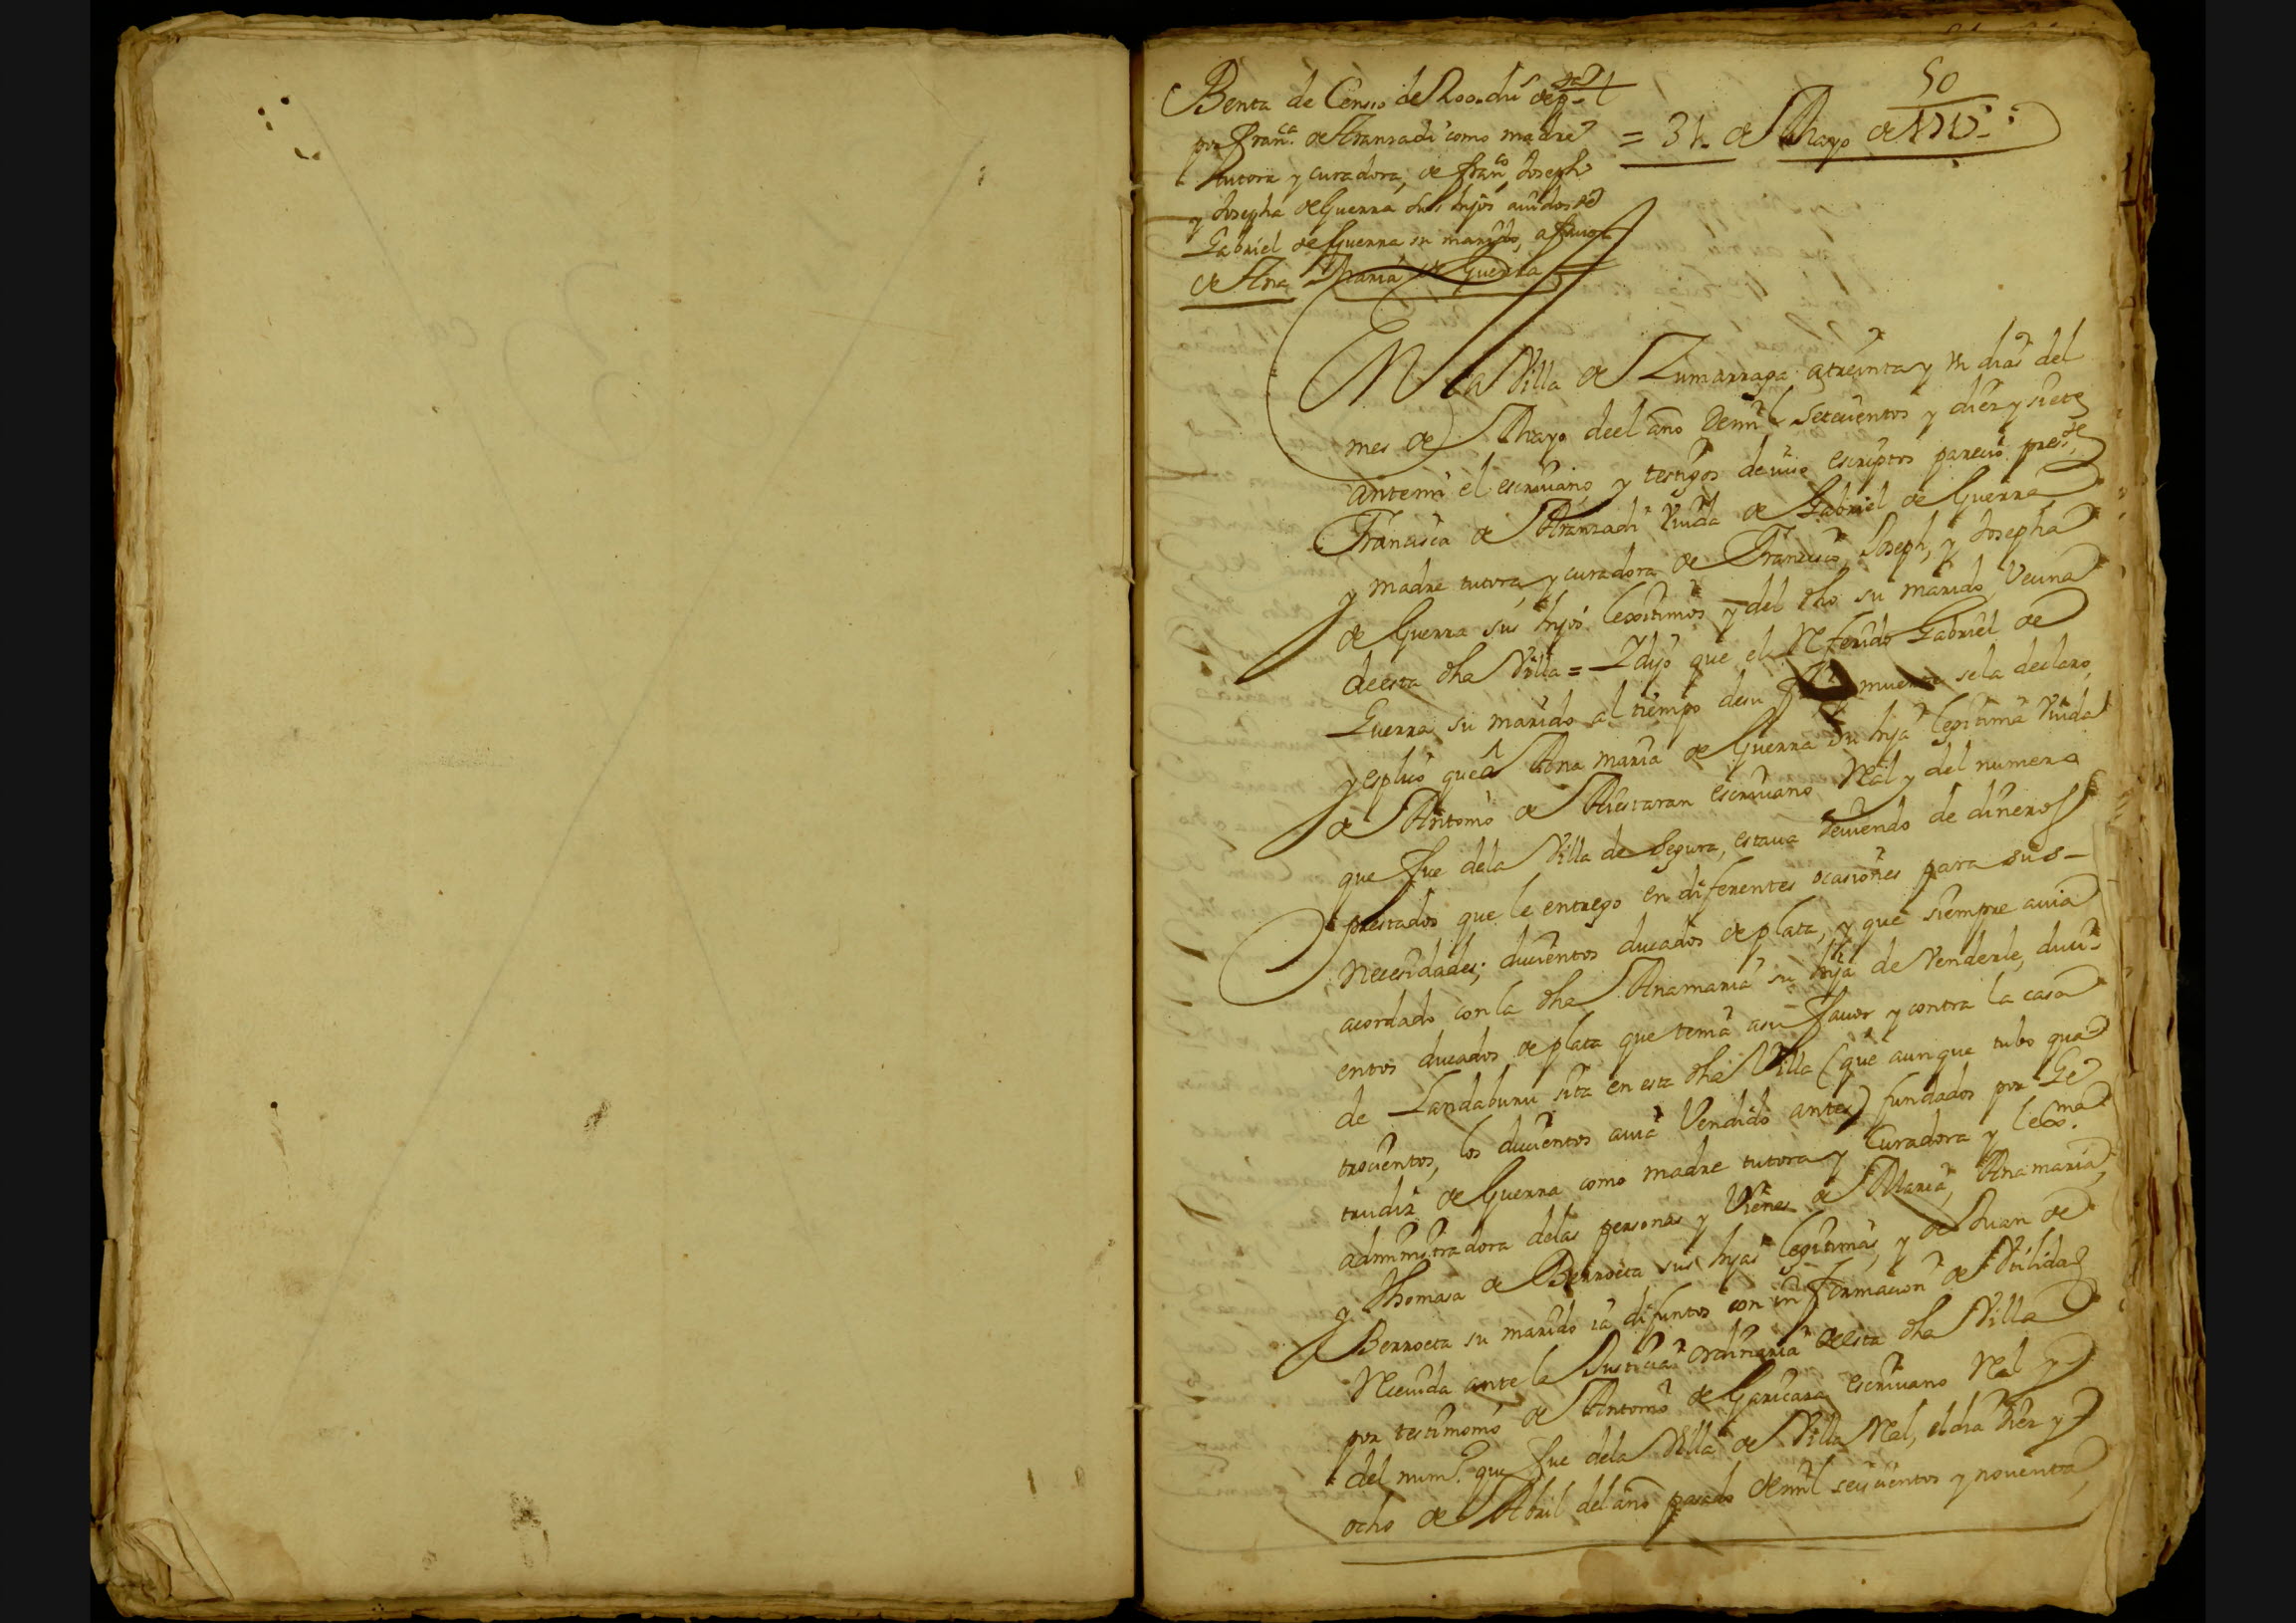 50
Benta de Censo de 200. du.s de p.ta
por fran.ca de Aranzadi como madre
tutora y curadora, de fran.co Joseph
y Josepha de Guerra sus hijos auidos de
Gabriel de Guerra su marido, a fauor
de Ana Maria de Guerra
= 31. de Mayo de 1717
EN la Villa de Zumarraga a treinta y un dias del
mes de Mayo deel año de mil Setecientos y diez y siete
ante mi el escriuano y testigos de iuso escriptos parecio pres.te
Francisca de Aranzadi Viuda de Gabriel de Guerra
y madre tutora y curadora de Francisco, Joseph, y Josepha
de Guerra sus hijos lexitimos y del dho su marido Vecina
de esta dha Villa = Y dijo que el Referido Gabriel de
Guerra su marido al tiempo de su muerte se la declaro,
y esplicò que â Ana maria de Guerra su hija legitima Viuda
de Antonio de Aiestaran escriuano Real y del numero
que fue dela Villa de Segura, estaua deuiendo de dineros
prestados que le entrego en diferentes ocasiones para sus-
necesidades; ducientos ducados de plata, y que siempre auia
acordado con la dha Ana maria su hija de Venderle, duci-
entos ducados de plata que tenia a su fauor y contra la casa
de Landaburu sita en esta dha Villa (que aunque tubo qua
trocientos, los ducientos auia Vendido antes) fundados por Ge
trudiz de Guerra como madre tutora y Curadora y lexma.
administradora delas personas y Vienes de Maria, Ana maria,
y Thomasa de Berroeta sus hijas legitimas, y de Juan de
Berroeta su marido ia difuntos con informacion de Utilidad
Reciuida ante la Justicia ordinaria de esta dha Villa
por testimonio de Antonio de Garicano escriuano Real y
del num.o que fue dela Villa de Villa Real, el dia diez y
ocho de Abril del año pasado de mil seiscientos y nouenta,